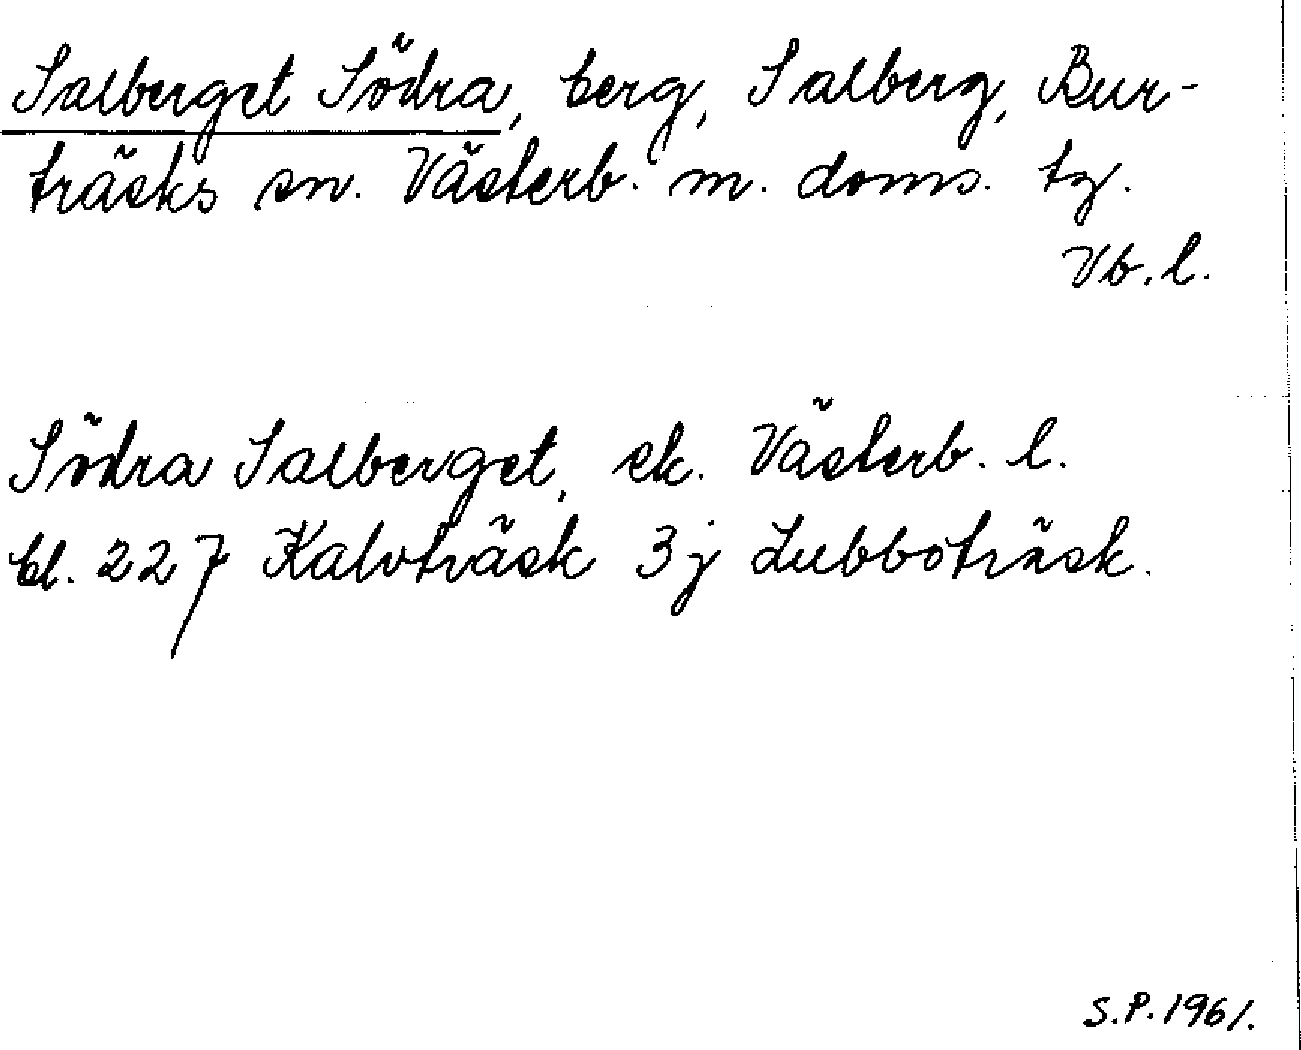 Salberget Södra, berg, Salberg, Bur-
träsks sn. Västerb. m. doms. tg.
Vb. l.
Södra Salberget, ek. Västerb. l.
bl. 227 Kalvträsk 3j Lubboträsk.
S.P. 1961.